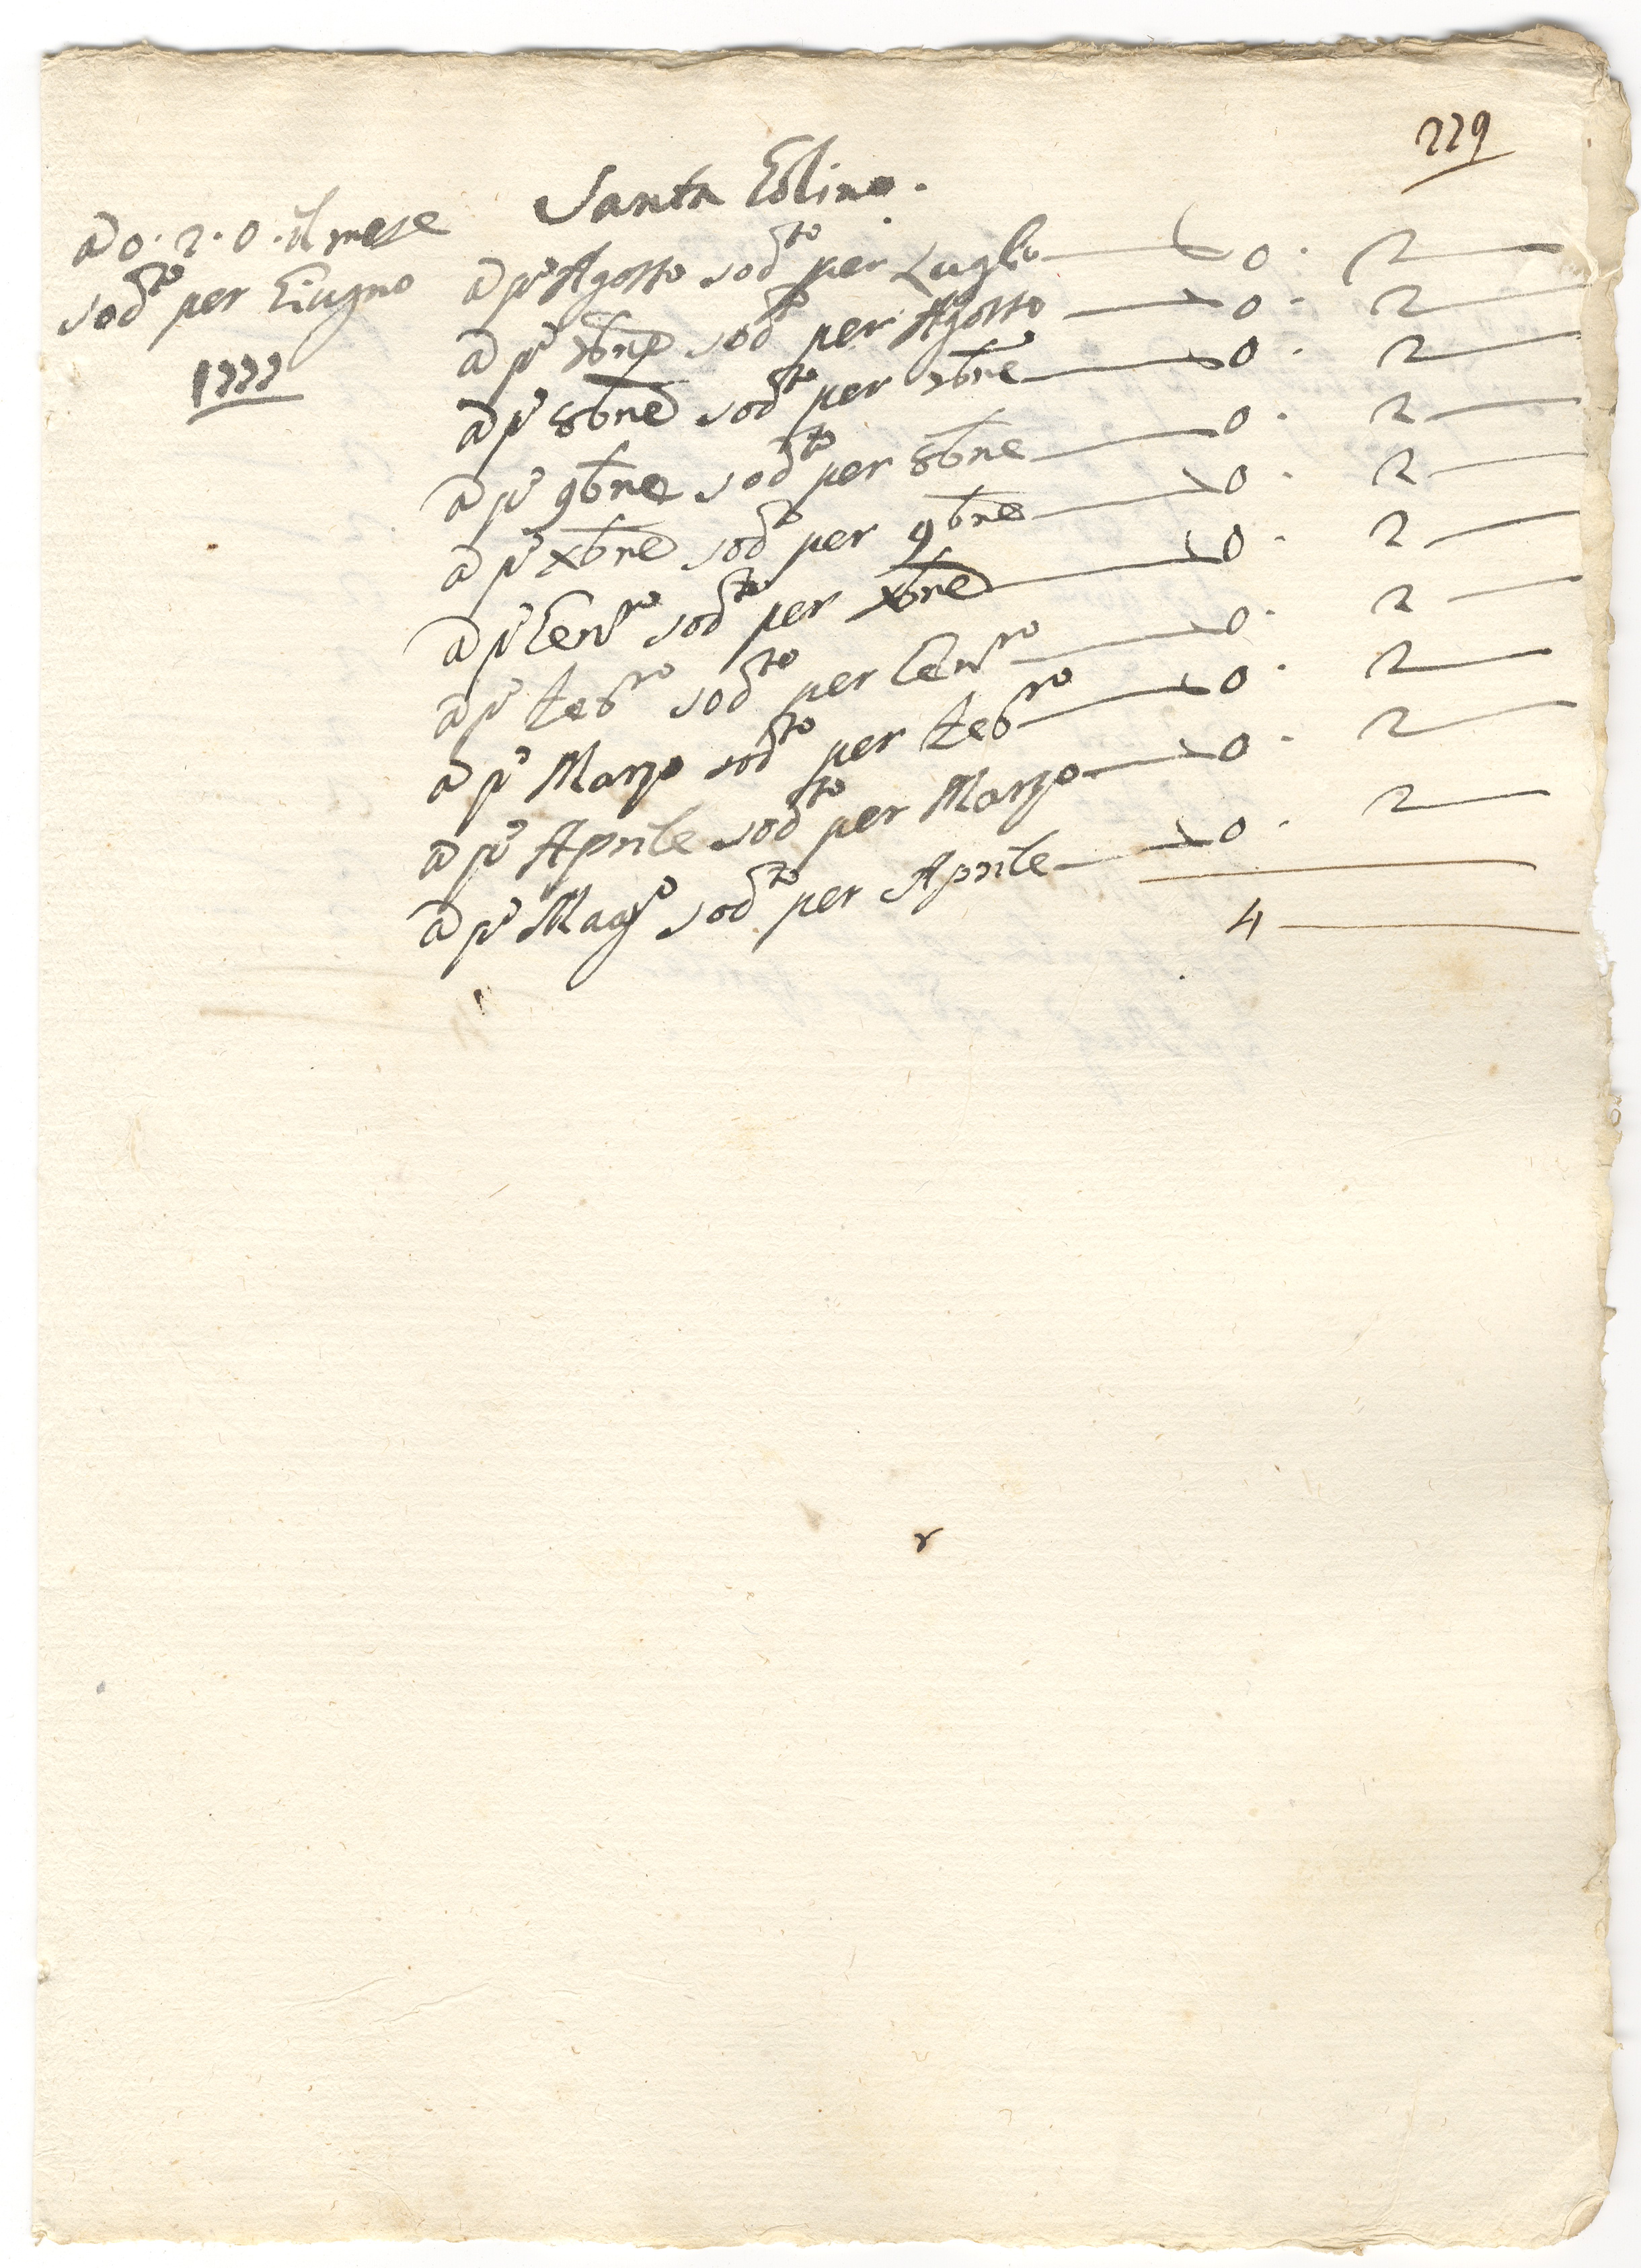 229
Santa
a 0. 2. 0. il mese
sod.to per Giugno
1777
a p.º Agosto sod.to per Luglio — 0. 2 —
a p.º 7bre sod.to per Agosto — 0. 2 —
a p.º 8bre sod.to per 7bre — 0. 2 —
a p.º 9bre sod.to per 8bre — 0. 2 —
a p.º Xbre sod.to per 9bre — 0. 2 —
a p.º Gen.ro sod.to per Xbre — 0. 2 —
a p.º Feb.ro sod.to per Gen.ro — 0. 2 —
a p.º Marzo sod.to per Feb.ro — 0. 2 —
a p.º Aprile sod.to per Marzo — 0. 2 —
a p.º Mag.º sod.to per Aprile — 0. 2 —
4 —